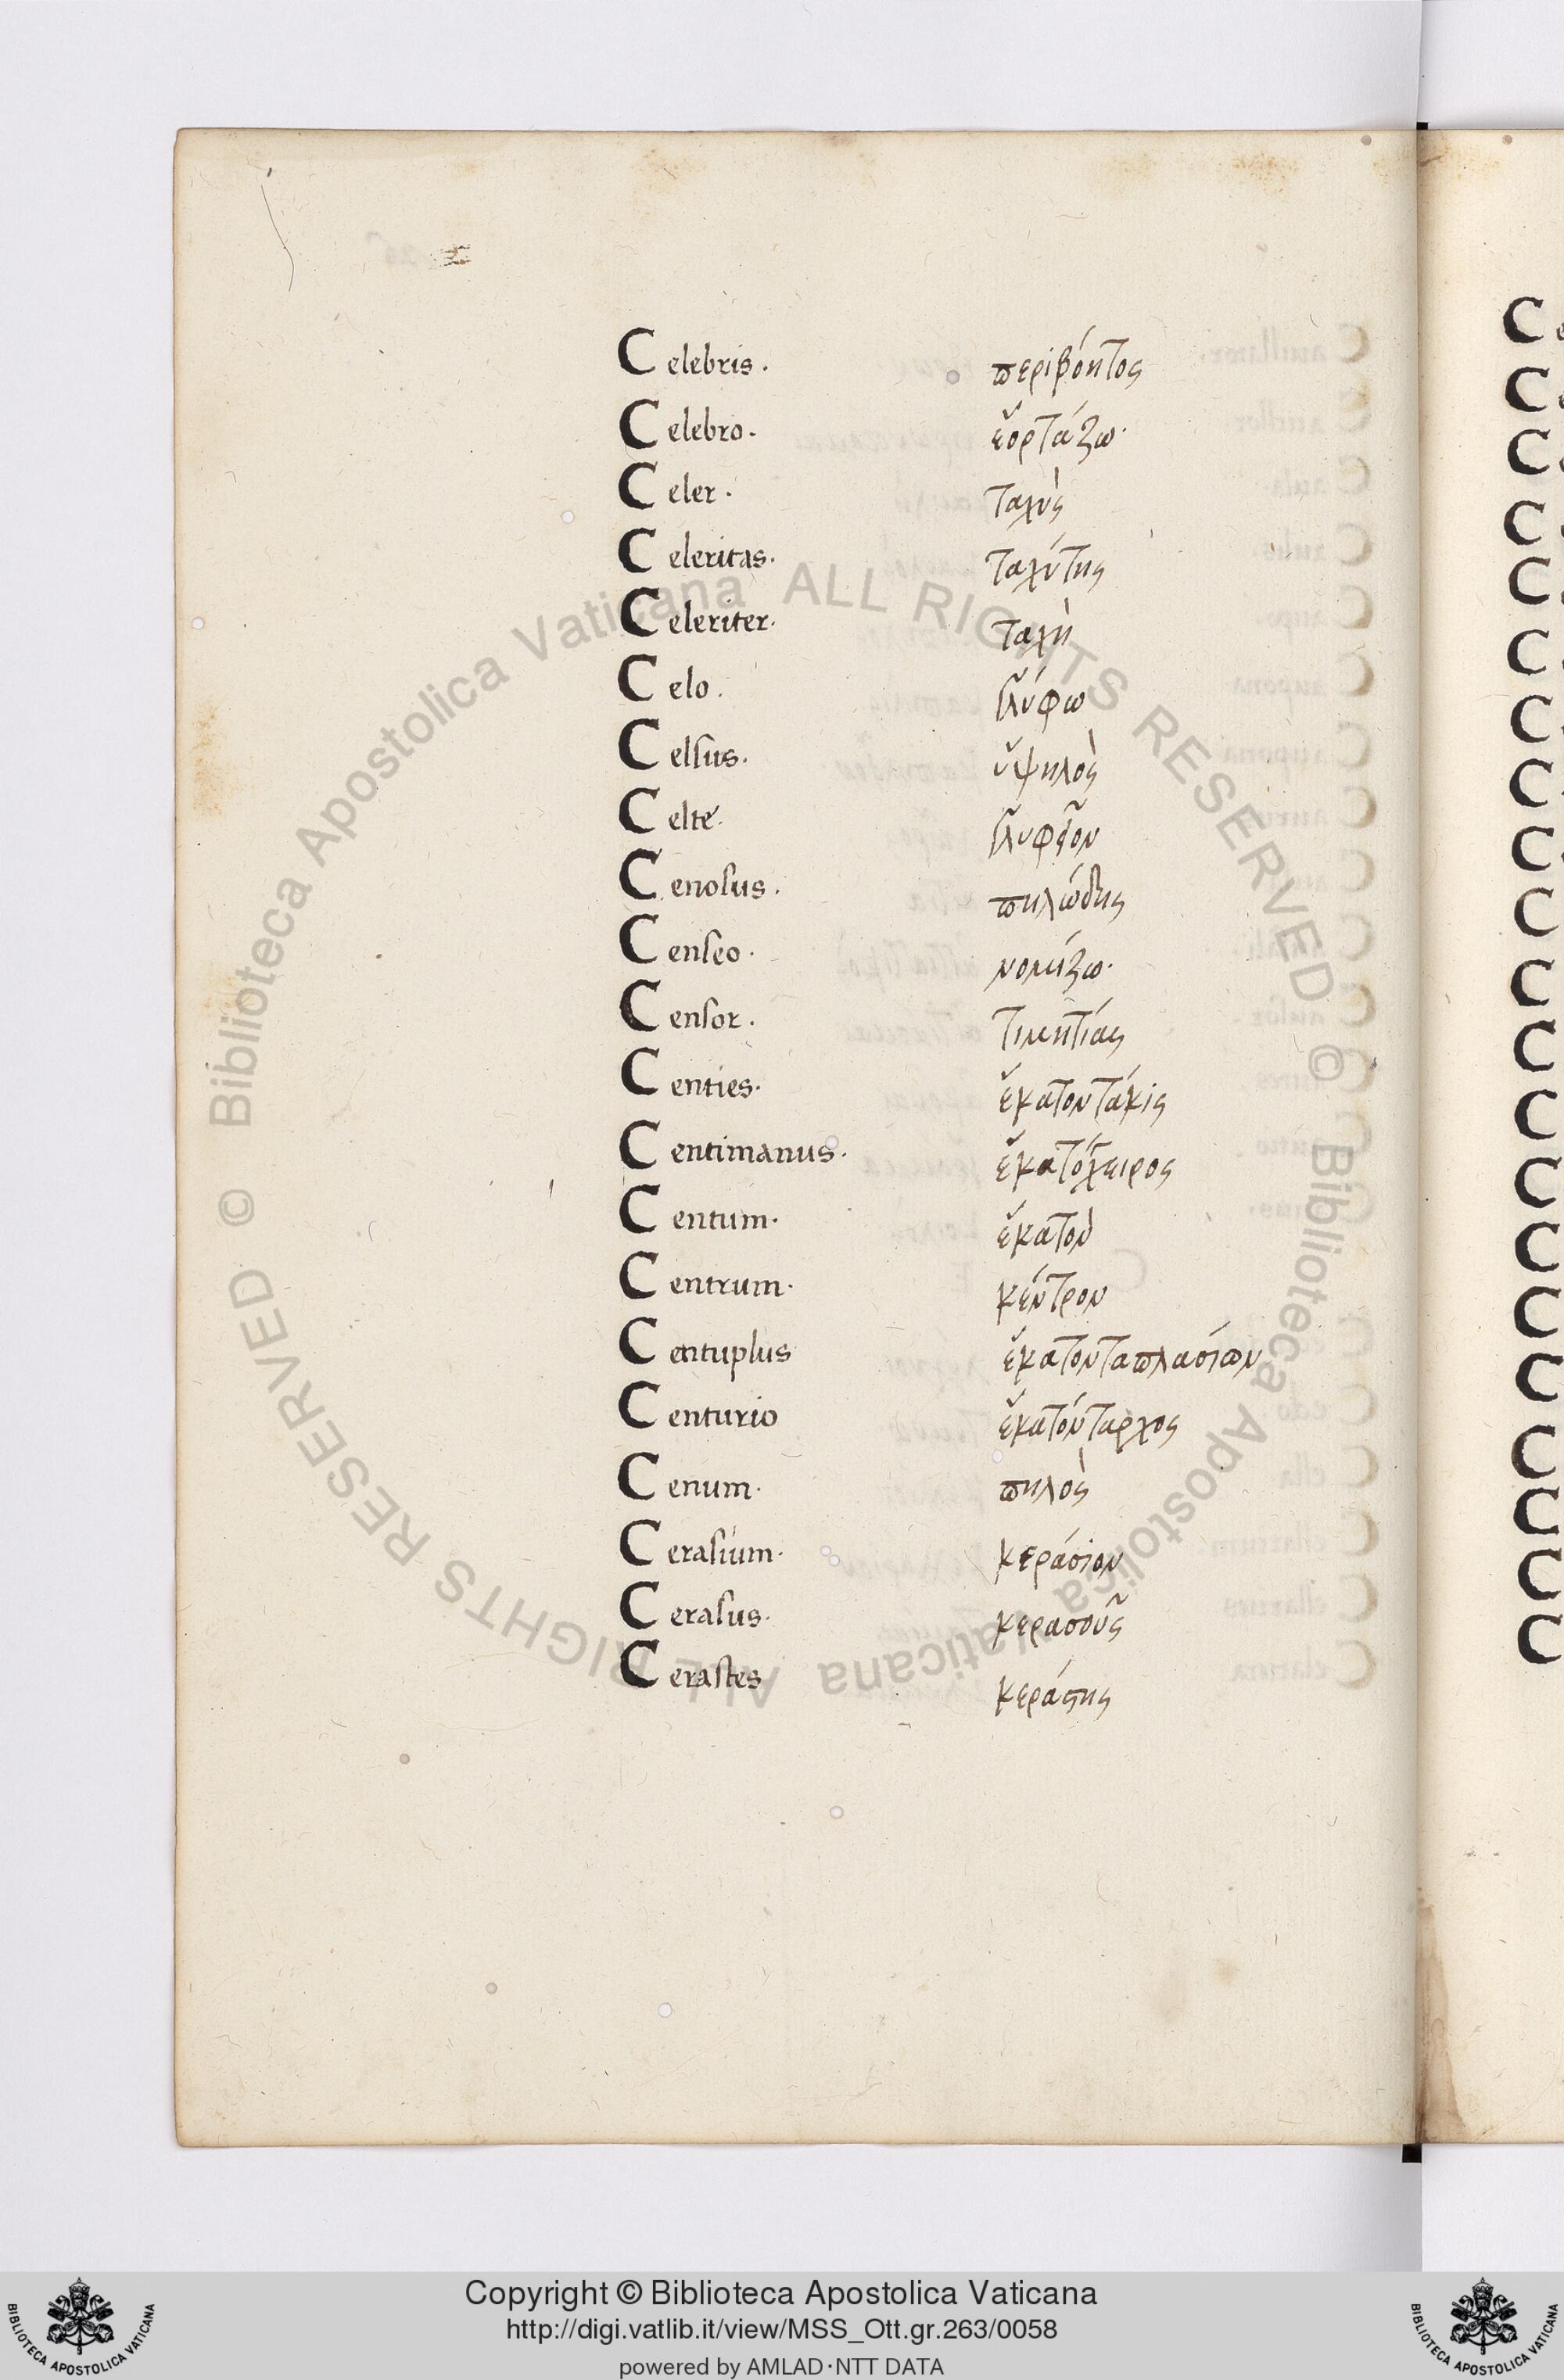 Celebris. περιβόητος
Celebro. ἑορτάζω.
Celer. ταχὺς
Celeritas. ταχύτης
Celeriter. ταχὺ
Celo. γλύφω
Celsus. ὑψηλὸς
Celte. γλυφεῖον
Cenosus. πηλώδης
Censeo. νομίζω.
Censor. τιμητίας
Centies. ἑκατοντάκις
Centimanus. ἑκατόγχειρος
Centum. ἑκατὸν
Centrum. κέντρον
Centuplus ἑκατονταπλασίων
Centurio ἑκατόνταρχος
Cenum. πηλὸς
Cerasium. κεράσιον
Cerasus. κερασοῦς
Cerastes κεράστης
Copyright © Biblioteca Apostolica Vaticana
http://digi.vatlib.it/view/MSS_Ott.gr.263/0058
powered by AMLAD·NTT DATA
BIBLIOTECA APOSTOLICA VATICANA
BIBLIOTECA APOSTOLICA VATICANA
© Biblioteca Apostolica Vaticana ALL RIGHTS RESERVED
© Biblioteca Apostolica Vaticana ALL RIGHTS RESERVED